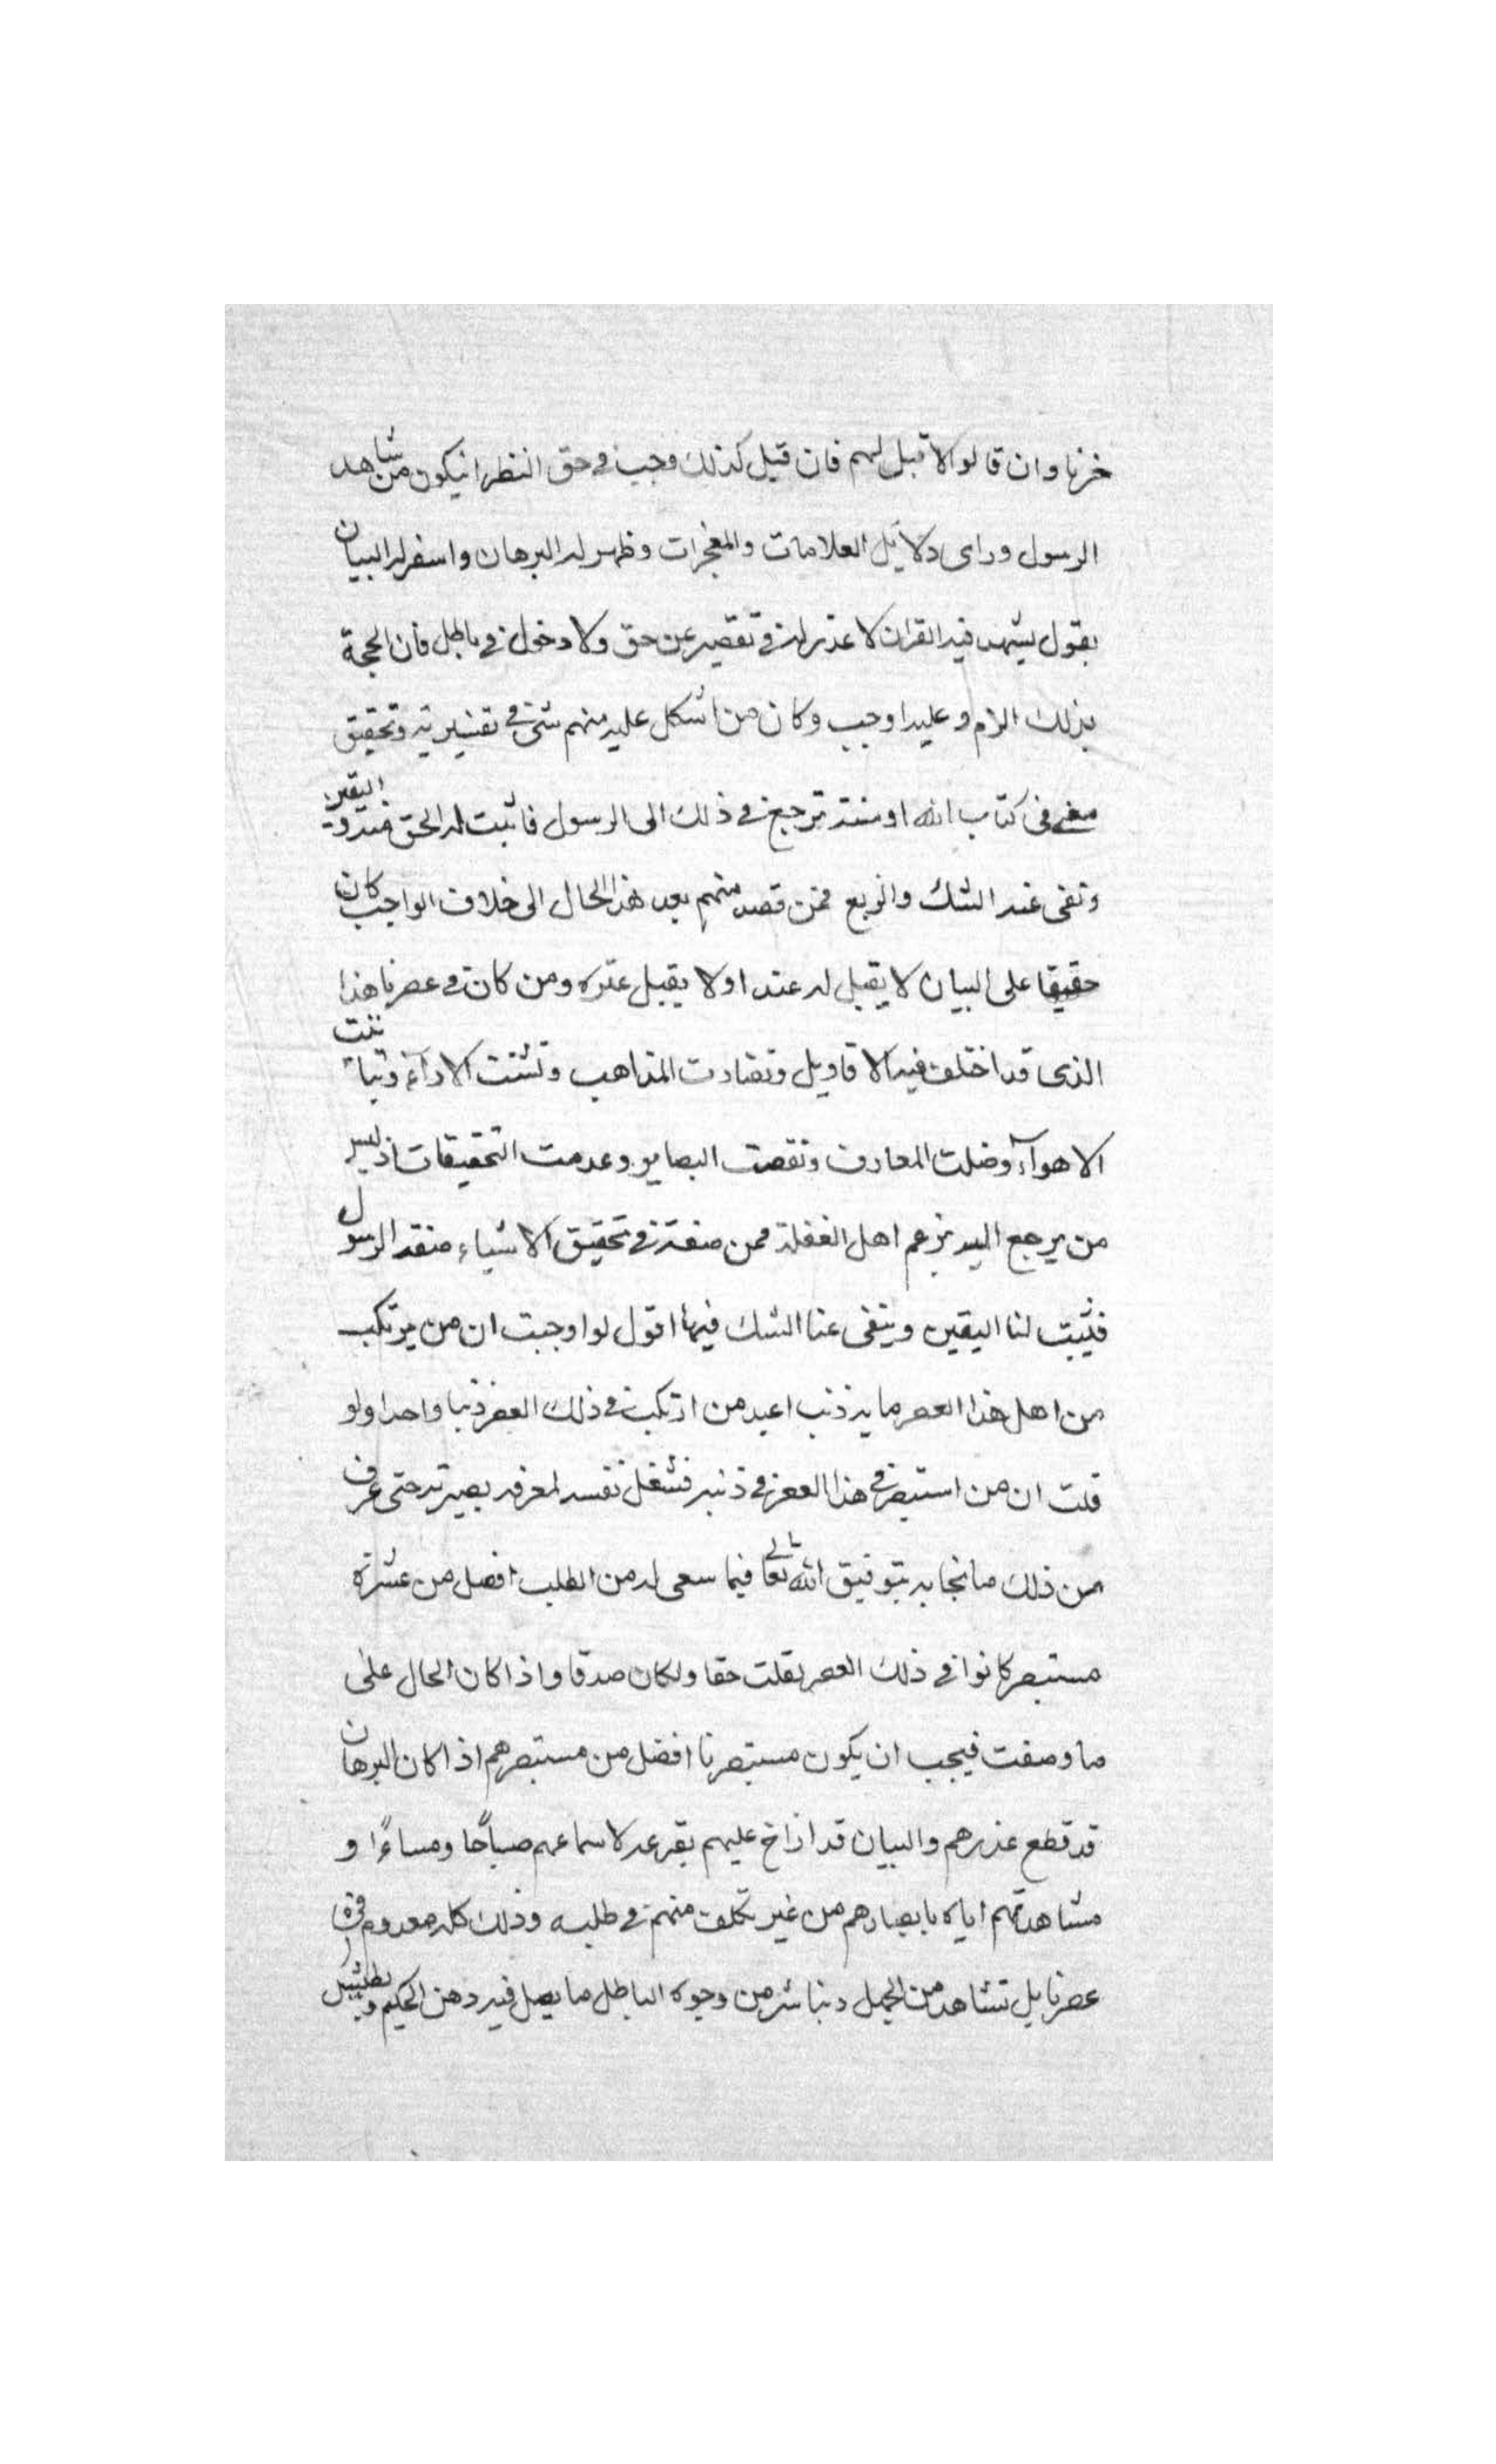 خزنا وان قالوا لا قيل لهم فان قيل كذلك وجب في حق النظر ان يكون من شاهد
الرسول وراى دلايل العلامات والمعجزات وظهر له البرهان واسفر له البيان
بقول يشهد فيه القران لا عذر له في تقصير عن حق ولا دخول في باطل فان الحجة
بذلك الزم وعليه اوجب وكان من اشكل عليه منهم شئ في تفسير وتحقيق
معنى في كتاب الله او سنة ترجع في ذلك الى الرسول فاثبت له الحق منه واليقين
ونفى عنه الشك والريع فمن قصد منهم بعد هذا الحال الى خلاف الواجب كان
حقيقا على البيان لا يقبل له عندا ولا يقبل عثره ومن كان في عصرنا هذا
الذى قد اختلف فيه الاقاويل وتضادت المذاهب وتشتت الاراء وتباينت
الاهوآء وضلت المعارف ونقصت البصاير وعدمت التحقيقات اذ ليس
من يرجع اليه بزعم اهل الغفلة فمن صنعة في تحقيق الاشياء الرسول
فيثبت لنا اليقين وينفى عنا الشك فيها اقول لو اوجبت ان من يرتكب
من اهل هذا العصر ماية ذنب اعيد من ارتكب في ذلك العصر ذنبا واحدا ولو
قلت ان من استبصر في هذا العصر في ذنبه فشغل نفسه لمعرفه بصيرته حتى عرف
من ذلك ما نجا به بتوفيق الله تعالى فيما سعى له من الطلب افضل من عشرة
مستبصر كانوا في ذلك العصر لقلت حقا ولكان صدقا واذا كان الحال على
ما وصفت فيجب ان يكون مستبصرنا افضل من مستبصرهم اذا كان البرهان
قد قطع عذرهم والبيان قد ازاح عليهم بقرعه لاسماعهم صباحا ومساءا و
مشاهدتهم اياه بابصارهم من غير تكلف منهم في طلبه وذلك كله معدوم في
عصرنا بل تشاهد من الجهل من وجوه الباطل ما يصل فيه ذهن الحكيم ويطيش